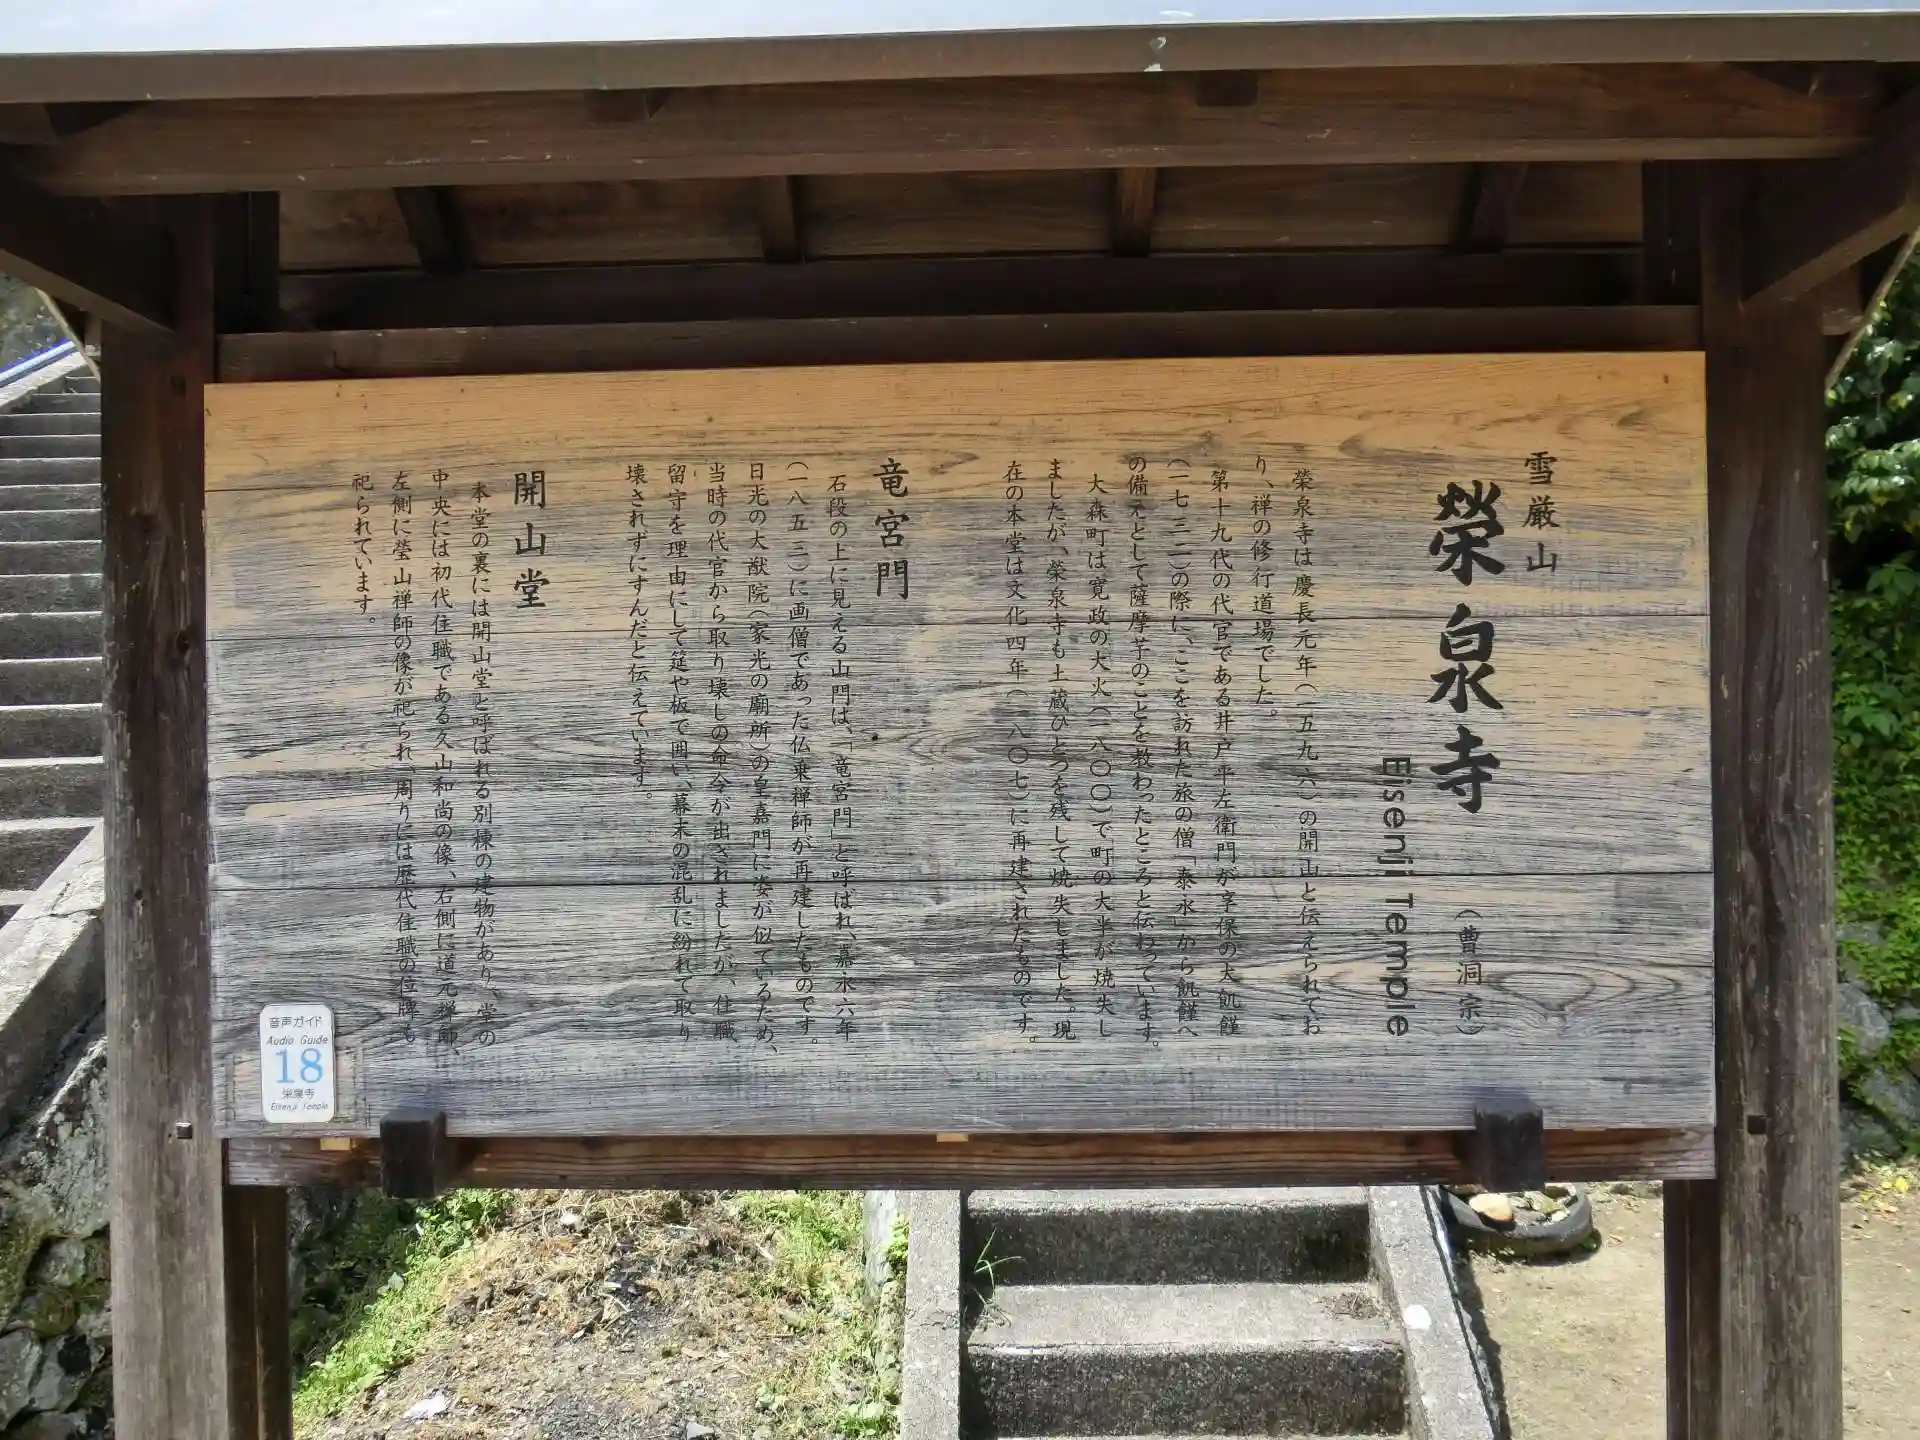 雪厳山
榮泉寺
(曹洞宗)
Eisenji Temple
榮泉寺は慶長元年(一五九六)の開山と伝えられてお
り、禅の修行道場でした。
第十九代の代官である井戸平左衛門が享保の大飢饉
(一七三二)の際に、ここを訪れた旅の僧「泰永」から飢饉へ
の備えとして薩摩芋のことを教わったところと伝わっています。
大森町は寛政の大火(一八〇〇)で町の大半が焼失し
ましたが、榮泉寺も土蔵ひとつを残して焼失しました。現
在の本堂は文化四年(一八〇七)に再建されたものです。
竜宮門
石段の上に見える山門は、「竜宮門」と呼ばれ、嘉永六年
(一八五三)に画僧であった仏乗禅師が再建したものです。
日光の大猷院(家光の廟所)の皇嘉門に姿が似ているため、
当時の代官から取り壊しの命令が出されましたが、住職
留守を理由にして筵や板で囲い、幕末の混乱に紛れて取り
壊されずにすんだと伝えています。
開山堂
本堂の裏には開山堂と呼ばれる別棟の建物があり、堂の
中央には初代住職である久山和尚の像、右側に道元禅師、
左側に瑩山禅師の像が祀られ、周りには歴代住職の位牌も
祀られています。
音声ガイド
Audio Guide
18
栄泉寺
Eisenji Temple